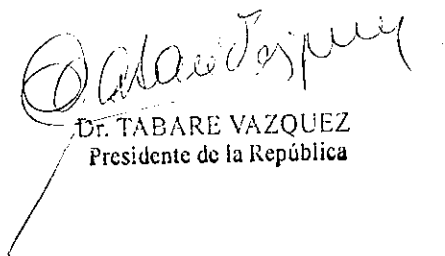 Dr. TABARE VAZQUEZ
Presidente de la República